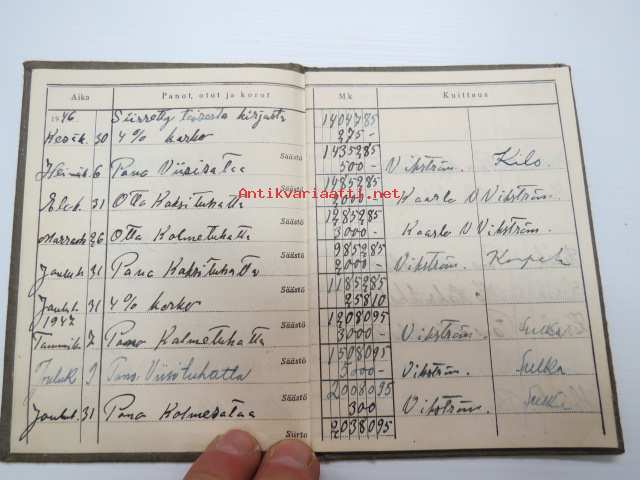 Aika Panot, otut ja korot Mk Kuittaus
1946 Siirretty toisesta kirjasta 14047,85
Kesäk. 30 4% korko 275 -
Säästö 14352,85
Heinäk. 6 Pano Viisisataa 500 - Vikström. Kilo.
Säästö 14852,85
Elok. 31 Otto Kaksituhatta 2000 - Kaarlo V Vikström.
Säästö 12852,85
Marrask. 26 Otto Kolmetuhatta 3000 - Kaarlo V Vikström.
Säästö 9852,85
Jouluk. 31 Pano Kaksituhatta 2000 - Vikström.
Säästö 11852,85
Jouluk. 31 4% korko 258 10
1947 Säästö 12080 95
Tammik. 7 Pano Kolmetuhatta 3000 - Vikström. Sulka
Säästö 15080 95
Jouluk 9 Pano Viisituhatta 5000 - Vikström. Sulka
Säästö 20080 95
Jouluk. 31 Pano Kolmesataa 300 Vikström. Sulka
Siirto 20380 95
Antikvariaatti.net